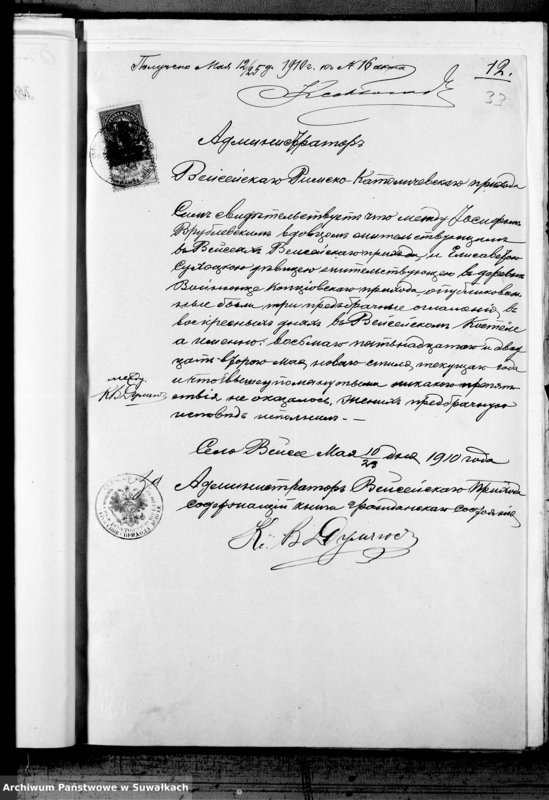 Получено Мая 12/25 д. 1910 г. къ № 16 акта
12.
33
Администраторъ
Вейсейскаго Римско-Католическаго прихода
Симъ свидѣтельствуетъ что между Іосифомъ
Врублевскимъ вдовцемъ жительствующимъ
въ Вейсеяхъ Вейсейскаго прихода, и Елисаветою
Сухоцкою дѣвицею жительствующею въ деревнѣ
Копціовскаго прихода, опубликован-
ные были три предбрачныя оглашенія въ
воскресныхъ дняхъ въ Вейсейскомъ Костелѣ
а именно: восьмаго пятнадцатаго и двад-
цать втораго Мая новаго стиля, текущаго года
и что вышеупомянутымъ никакого препят-
ствія не оказалось. Женихъ предбрачную
исповѣдь исполнилъ. —
между
Село Вейсее Мая 10/23 дня 1910 года
Администраторъ Вейсейскаго Прихода
содержащій книги гражданскаго состоянія
Кс. В.
Archiwum Państwowe w Suwałkach